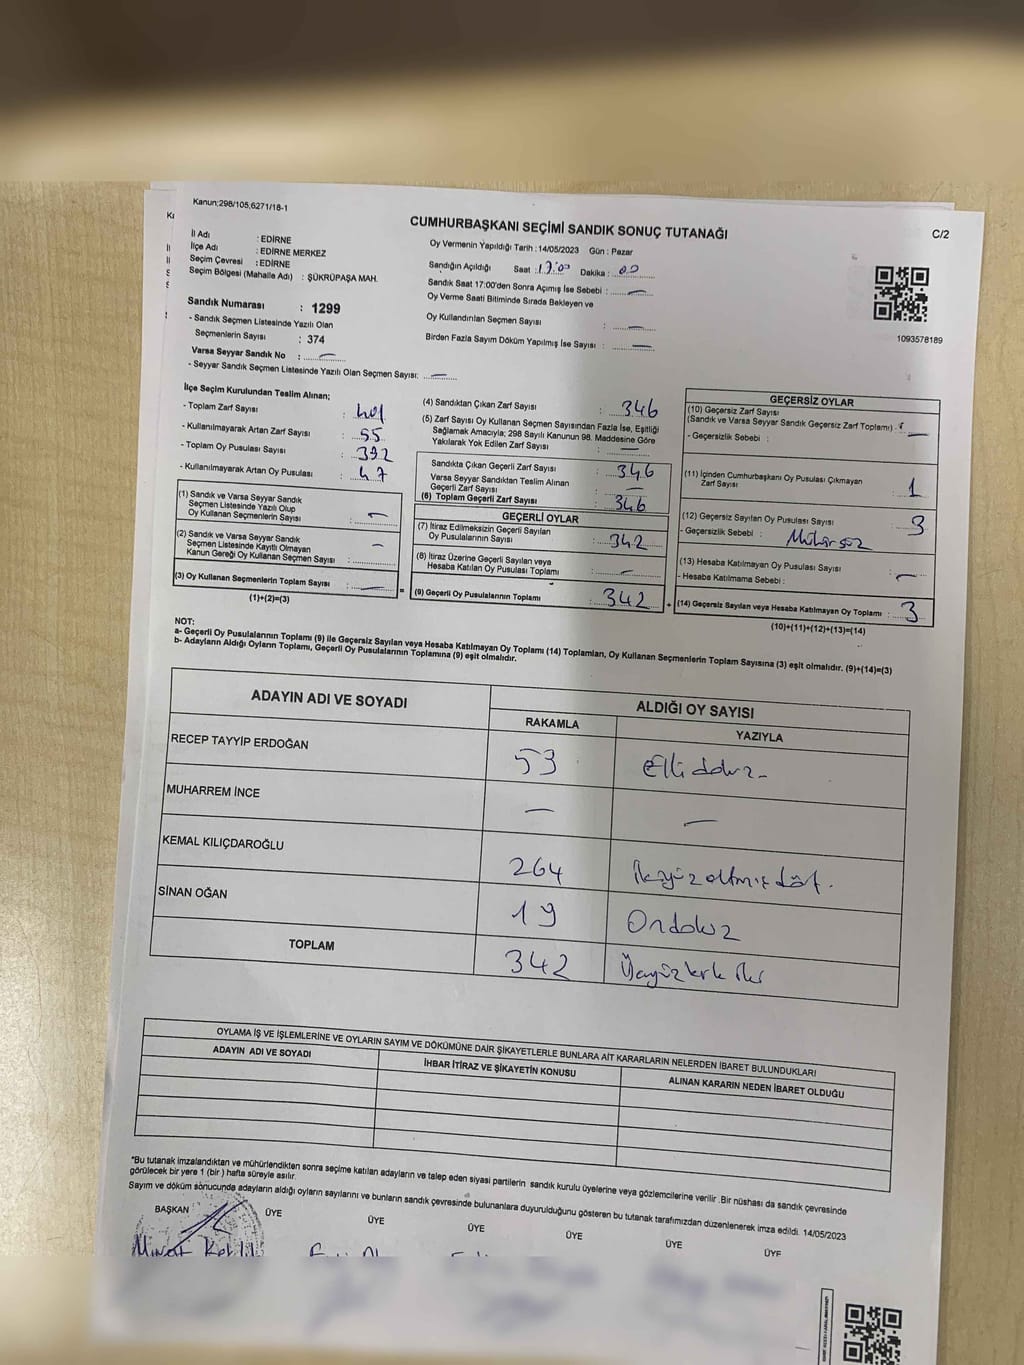 Kanun;298/105,6271/18-1
CUMHURBAŞKANI SEÇİMİ SANDIK SONUÇ TUTANAĞI
C/2
İl Adı : EDİRNE
İlçe Adı : EDİRNE MERKEZ
Seçim Çevresi : EDİRNE
Seçim Bölgesi (Mahalle Adı) : ŞÜKRÜPAŞA MAH.
Sandık Numarası : 1299
- Sandık Seçmen Listesinde Yazılı Olan
Seçmenlerin Sayısı : 374
Varsa Seyyar Sandık No : —
- Seyyar Sandık Seçmen Listesinde Yazılı Olan Seçmen Sayısı: —
Oy Vermenin Yapıldığı Tarih : 14/05/2023 Gün : Pazar
Sandığın Açıldığı Saat : 17:00 Dakika : 00
Sandık Saat 17:00'den Sonra Açımış İse Sebebi : —
Oy Verme Saati Bitiminde Sırada Bekleyen ve
Oy Kullandırılan Seçmen Sayısı : —
Birden Fazla Sayım Döküm Yapılmış İse Sayısı : —
1093578189
İlçe Seçim Kurulundan Teslim Alınan;
- Toplam Zarf Sayısı : 401
- Kullanılmayarak Artan Zarf Sayısı : 55
- Toplam Oy Pusulası Sayısı : 392
- Kullanılmayarak Artan Oy Pusulası : 47
(1) Sandık ve Varsa Seyyar Sandık
Seçmen Listesinde Yazılı Olup
Oy Kullanan Seçmenlerin Sayısı : —
(2) Sandık ve Varsa Seyyar Sandık
Seçmen Listesinde Kayıtlı Olmayan
Kanun Gereği Oy Kullanan Seçmen Sayısı : —
(3) Oy Kullanan Seçmenlerin Toplam Sayısı : —
(1)+(2)=(3)
(4) Sandıktan Çıkan Zarf Sayısı : 346
(5) Zarf Sayısı Oy Kullanan Seçmen Sayısından Fazla İse, Eşitliği
Sağlamak Amacıyla; 298 Sayılı Kanunun 98. Maddesine Göre
Yakılarak Yok Edilen Zarf Sayısı : —
Sandıkta Çıkan Geçerli Zarf Sayısı : 346
Varsa Seyyar Sandıktan Teslim Alınan
Geçerli Zarf Sayısı : —
(6) Toplam Geçerli Zarf Sayısı : 346
GEÇERLİ OYLAR
(7) İtiraz Edilmeksizin Geçerli Sayılan
Oy Pusulalarının Sayısı : 342
(8) İtiraz Üzerine Geçerli Sayılan veya
Hesaba Katılan Oy Pusulası Toplamı : —
(9) Geçerli Oy Pusulalarının Toplamı : 342
GEÇERSİZ OYLAR
(10) Geçersiz Zarf Sayısı
(Sandık ve Varsa Seyyar Sandık Geçersiz Zarf Toplamı) : —
- Geçersizlik Sebebi :
(11) İçinden Cumhurbaşkanı Oy Pusulası Çıkmayan
Zarf Sayısı : 1
(12) Geçersiz Sayılan Oy Pusulası Sayısı : 3
- Geçersizlik Sebebi : Mühürsüz
(13) Hesaba Katılmayan Oy Pusulası Sayısı : —
- Hesaba Katılmama Sebebi :
(14) Geçersiz Sayılan veya Hesaba Katılmayan Oy Toplamı : 3
(10)+(11)+(12)+(13)=(14)
NOT:
a- Geçerli Oy Pusulalarının Toplamı (9) ile Geçersiz Sayılan veya Hesaba Katılmayan Oy Toplamı (14) Toplamları, Oy Kullanan Seçmenlerin Toplam Sayısına (3) eşit olmalıdır. (9)+(14)=(3)
b- Adayların Aldığı Oyların Toplamı, Geçerli Oy Pusulalarının Toplamına (9) eşit olmalıdır.
ADAYIN ADI VE SOYADI ALDIĞI OY SAYISI
RAKAMLA YAZIYLA
RECEP TAYYİP ERDOĞAN 53
MUHARREM İNCE — —
KEMAL KILIÇDAROĞLU 264 ikiyüzaltmışdört.
SİNAN OĞAN 19 Ondokuz
TOPLAM 342 Üçyüzkırk iki
OYLAMA İŞ VE İŞLEMLERİNE VE OYLARIN SAYIM VE DÖKÜMÜNE DAİR ŞİKAYETLERLE BUNLARA AİT KARARLARIN NELERDEN İBARET BULUNDUKLARI
ADAYIN ADI VE SOYADI İHBAR İTİRAZ VE ŞİKAYETİN KONUSU ALINAN KARARIN NEDEN İBARET OLDUĞU
*Bu tutanak imzalandıktan ve mühürlendikten sonra seçime katılan adayların ve talep eden siyasi partilerin sandık kurulu üyelerine veya gözlemcilerine verilir .Bir nüshası da sandık çevresinde
görülecek bir yere 1 (bir ) hafta süreyle asılır.
Sayım ve döküm sonucunda adayların aldığı oyların sayılarını ve bunların sandık çevresinde bulunanlara duyurulduğunu gösteren bu tutanak tarafımızdan düzenlenerek imza edildi. 14/05/2023
BAŞKAN ÜYE ÜYE ÜYE ÜYE ÜYE ÜYE